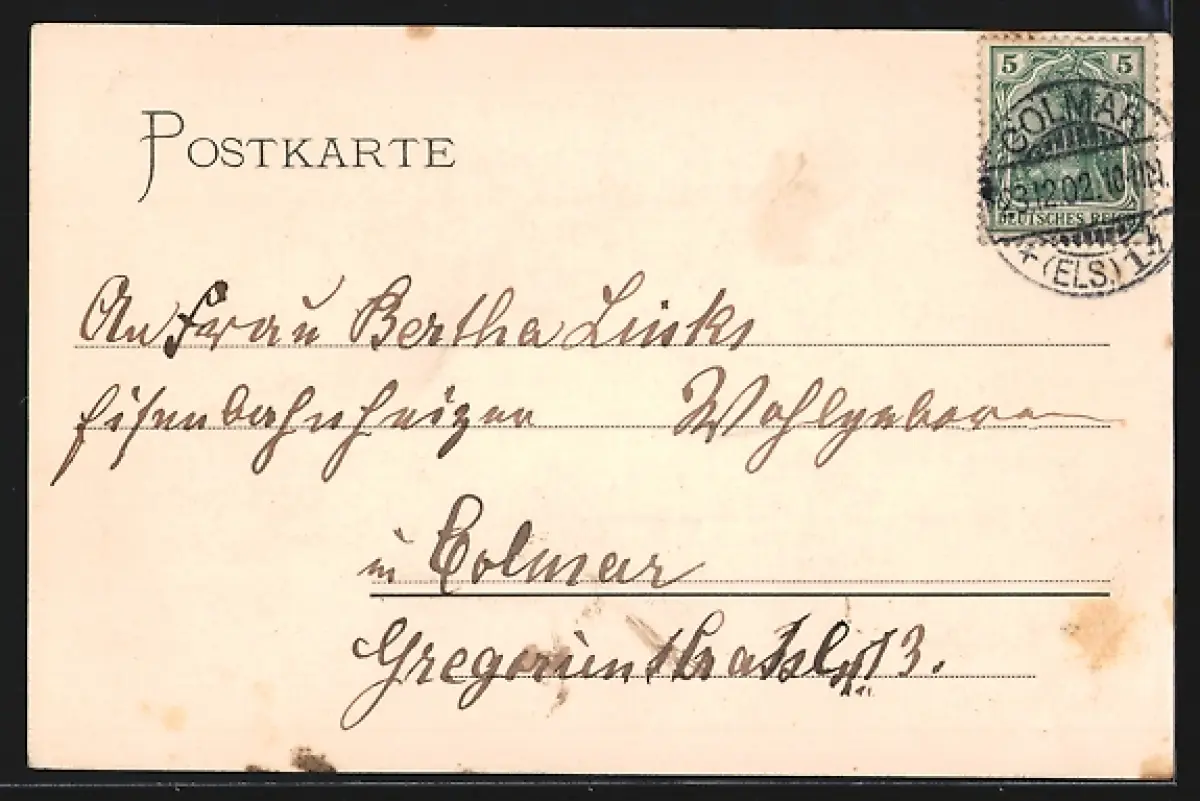 POSTKARTE
5 5
COLMAR
23.12.02.10-11N.
DEUTSCHES REICH
* (ELS.) 1
An Frau Bertha Links
Eisenbahnheizer Wohlgeboren
in Colmar
Gregorienstrasse 13.